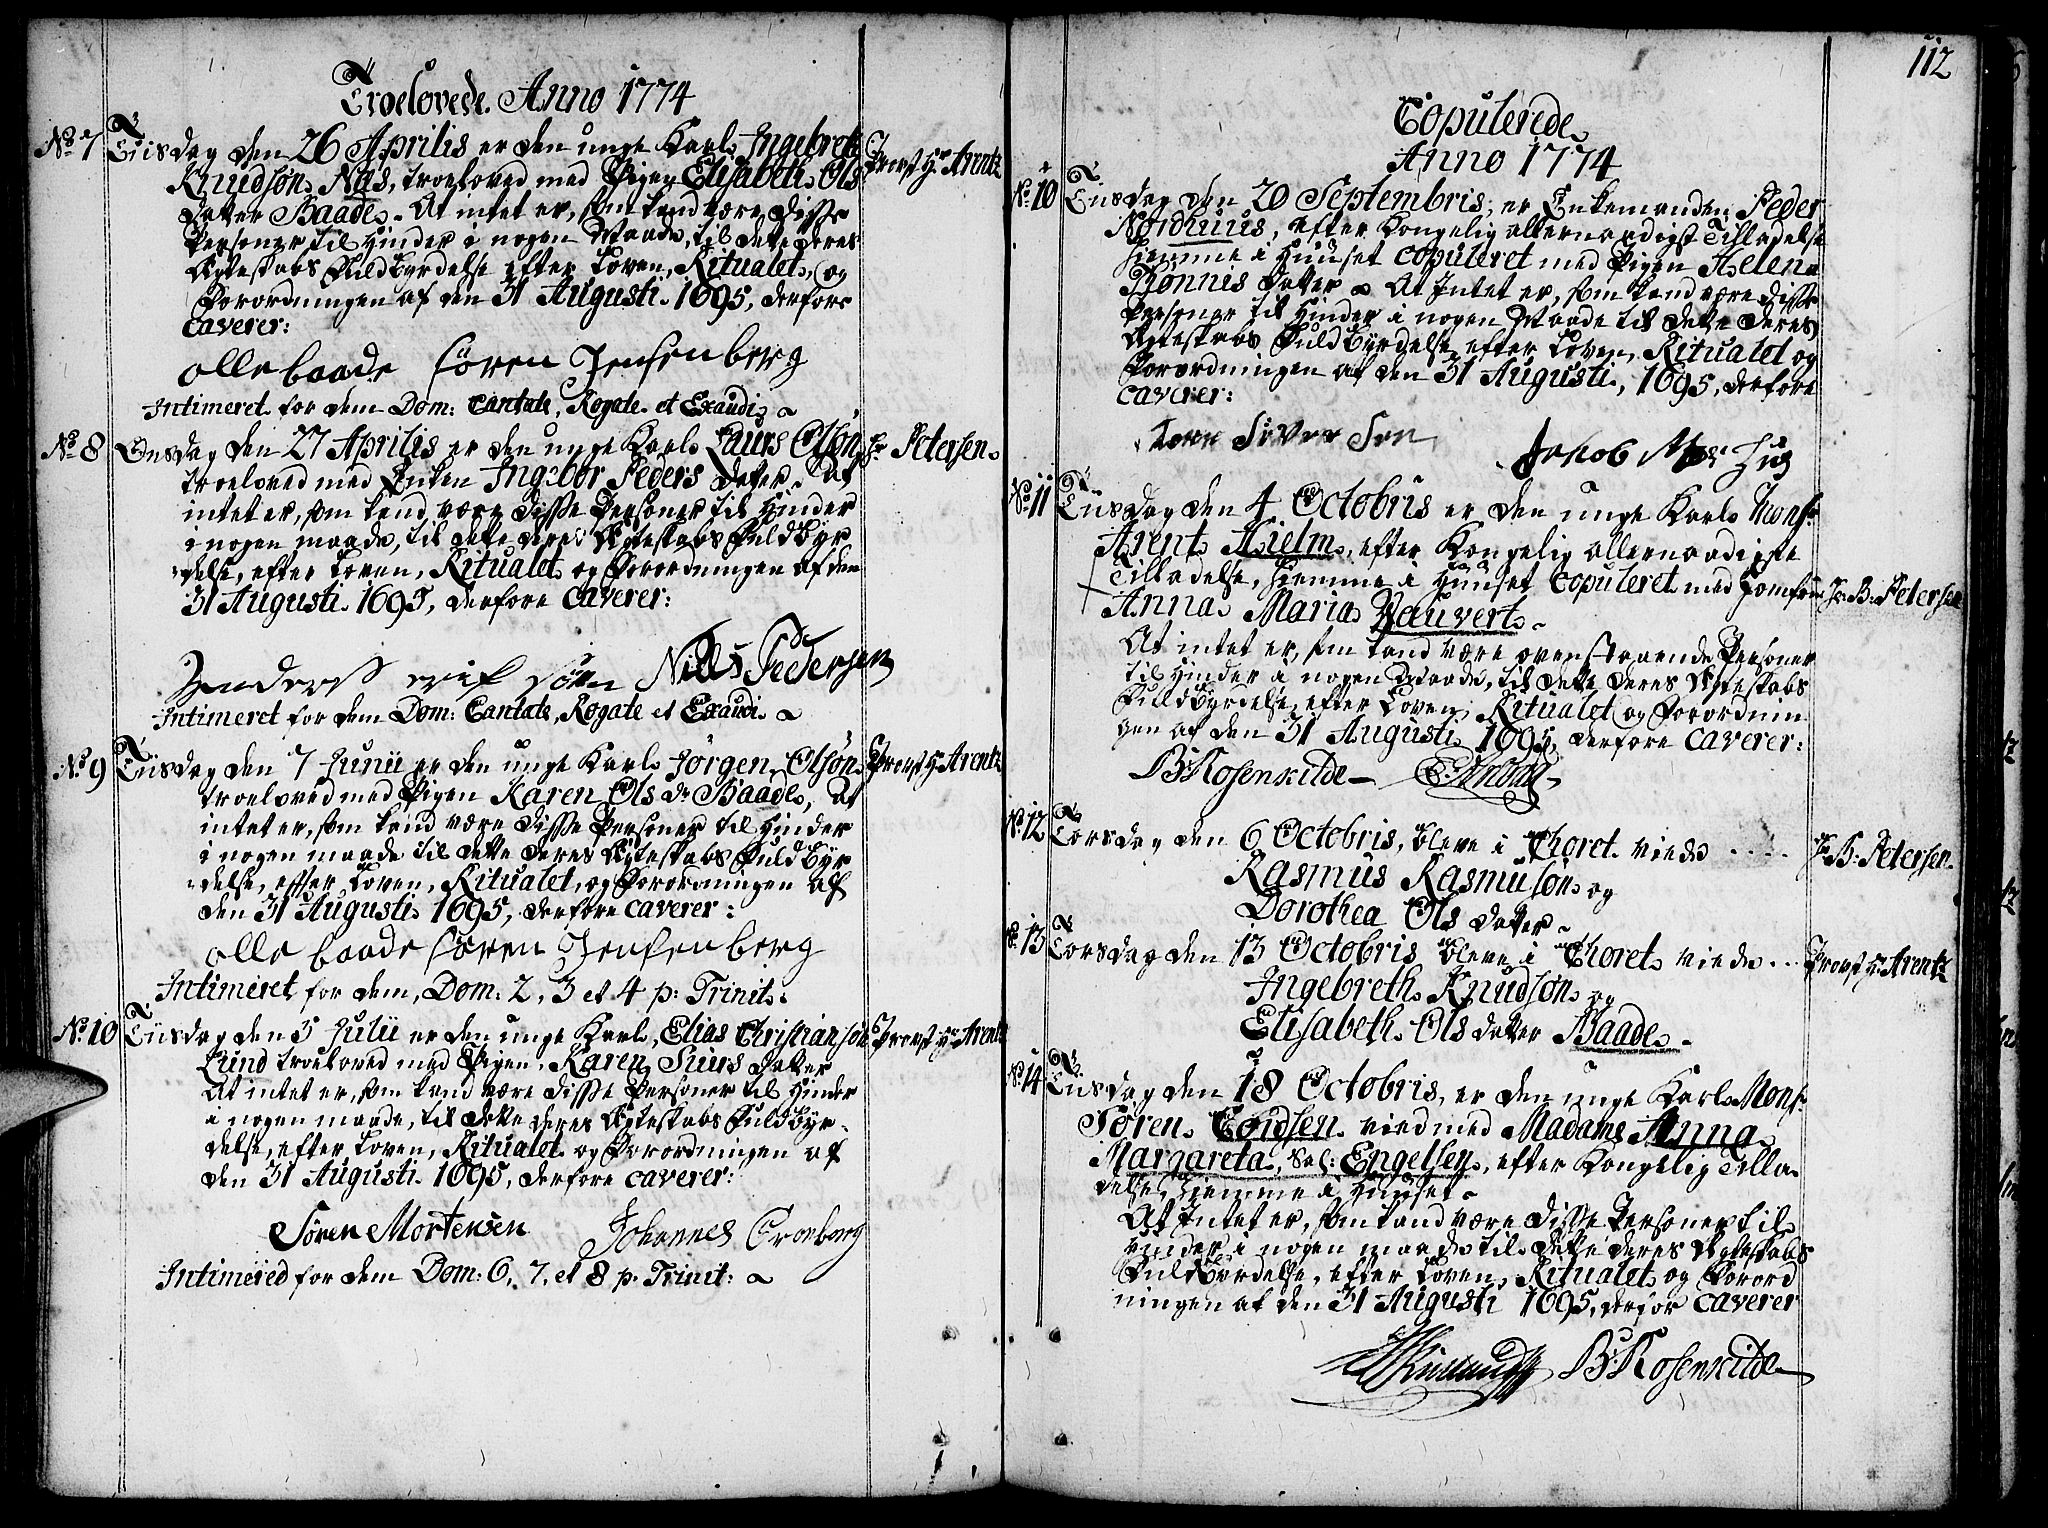 Troelovede Anno 1774
No 7 Tiisdag den 26 Aprilis er den unge Karl Ingebreth Provst Hr Arentz
Knudsøn Næs, troeloved med Pigen Elisabeth Ols
Datter Baade. At intet er, som kand være disse
Personer til Hinder i nogen Maade, til dette deres
Ægteskabs Fuldbyrdelse efter Loven, Ritualet, og
Forordningen af den 31 Augusti 1695, derfore
caverer:
olle baade søren Jensen berg
Intimeret for dem Dom: Cantate, Rogate et Exaudi
No 8 Onsdag den 27 Aprilis er den unge Karl Laurs Olsøn Hr Petersen
troeloved med Enken Ingebor Peders Datter. At
intet er, som kand være disse Personer til Hinder
i nogen maade, til dette deres Ægteskabs Fuldbyr
delse, efter Loven, Ritualet og Forordningen af den
31 Augusti 1695, derfore caverer:
Anders erik søn Niels Pedersen
Intimeret for dem Dom: Cantate, Rogate et Exaudi
No 9 Tiisdag den 7 Junii er den unge Karl Jørgen Olsøn Provst Hr Arentz
troeloved med Pigen Karen Ols dr Baade, At
intet er, som kand være disse Personer til Hinder
i nogen maade til dette deres Ægteskabs Fuldbyr
delse, efter Loven, Ritualet, og Forordningen af
den 31 Augusti 1695, derfore caverer:
olle baade søren Jensen berg
Intimeret for dem, Dom: 2, 3 et 4 p: Trinit:
No 10 Tiisdag den 5 Julii er den unge Karl, Elias Christiansøn Provst Hr Arentz
Lund troeloved med Pigen, Karen Siurs Datter
At intet er, som kand være disse Personer til Hinder
i nogen maade, til dette deres Ægteskabs Fuldbyr
delse, efter Loven, Ritualet og Forordningen af
den 31 Augusti 1695, derfore caverer:
Søren Mortensen Johannes Cronborg
Intimered for dem Dom: 6, 7, et 8 p. Trinit:
112
Copulerede
Anno 1774
No 10 Tiisdag den 20 Septembris, er Enkemanden Peder
Nordhuus, efter Kongelig allernaadigst Tilladelse
hiemme i Huuset copuleret med Pigen Helena
Tønnis Datter. At Intet er, som kand være disse
Personer til Hinder i nogen Maade til dette deres
Ægteskabs Fuldbyrdelse efter Loven, Ritualet og
Forordningen af den 31 Augusti, 1695, derfore
caverer:
Siver Sen Jakob
No 11 Tiisdag den 4 Octobris er den unge Karl Monsr
Arent Hielm, efter Kongelig allernaadigste
Tilladelse, hiemme i Huuset Copuleret med Jomfrue Hr B: Petersen
Anna Maria Vauvert
At intet er, som kand være ovenstaaende Personer
til Hinder i nogen Maade, til dette deres Ægteskabs
Fuldbyrdelse, efter Loven, Ritualet og Forordnin
gen af den 31 Augusti 1695, derfore caverer:
B: Rosenkilde
No 12 Torsdag den 6 Octobris, bleve i Choret viede .... Hr B: Petersen
Rasmus Rasmusøn og
Dorothea Ols Datter
No 13 Torsdag den 13 Octobris bleve i Choret viede ... Provst Hr Arentz
Ingebreth Knudsøn og
Elisabeth Ols datter Baade
No 14 Tiisdag den 18 Octobris, er den unge Karl Monsr
Søren Cordsen vied med Madame Anna
Margareta, Sal: Engelsen, efter Kongelig Tilla
delse, hiemme i Huuset
At Intet er, som kand være disse Personer til
Hinder i nogen maade til dette deres Ægteskabs
Fuldbyrdelse, efter Loven, Ritualet og Forord
ningen af den 31 Augusti 1695, derfor caverer
B: Rosenkilde